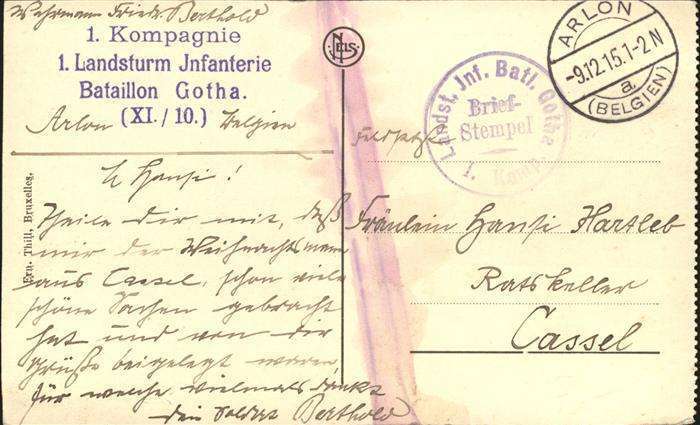 Wehrmann Friedr. Berthold
1. Kompagnie
1. Landsturm Jnfanterie
Bataillon Gotha.
(XI. / 10.)
Arlon Belgien
L. Hansi!
Theile dir mit, daß
mir der Weihnachtsmann
aus Cassel, schon viele
schöne Sachen gebracht
hat und von dir
Grüße beigelegt waren,
für welche vielmals dankt
dein Soldat Berthold
Ern. Thill, Bruxelles.
NELS
Landst. Jnf. Batl. Gotha
Brief-
Stempel
1. Komp.
ARLON
-9.12.15.1-2N
a.
(BELGIEN)
Fräulein Hansi Hartleb
Ratskeller
Cassel